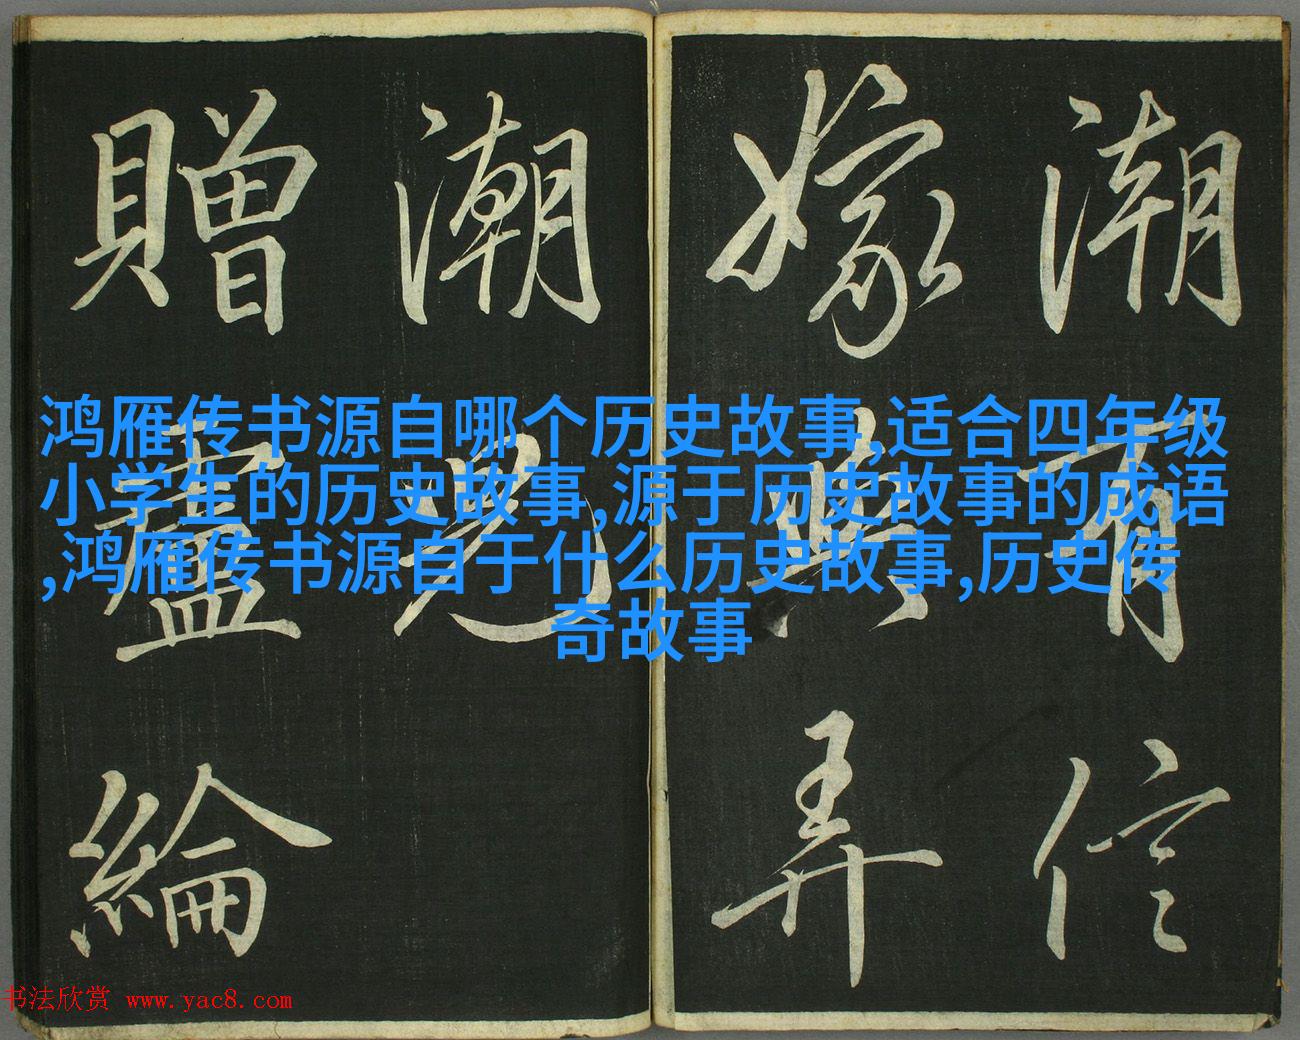 潮有信
嫁與弄
潮兒
贈盧綸
鸿雁传书源自哪个历史故事,适合四年级
小学生的历史故事,源于历史故事的成语
,鸿雁传书源自于什么历史故事,历史传
奇故事
书法欣赏 www.yac8.com